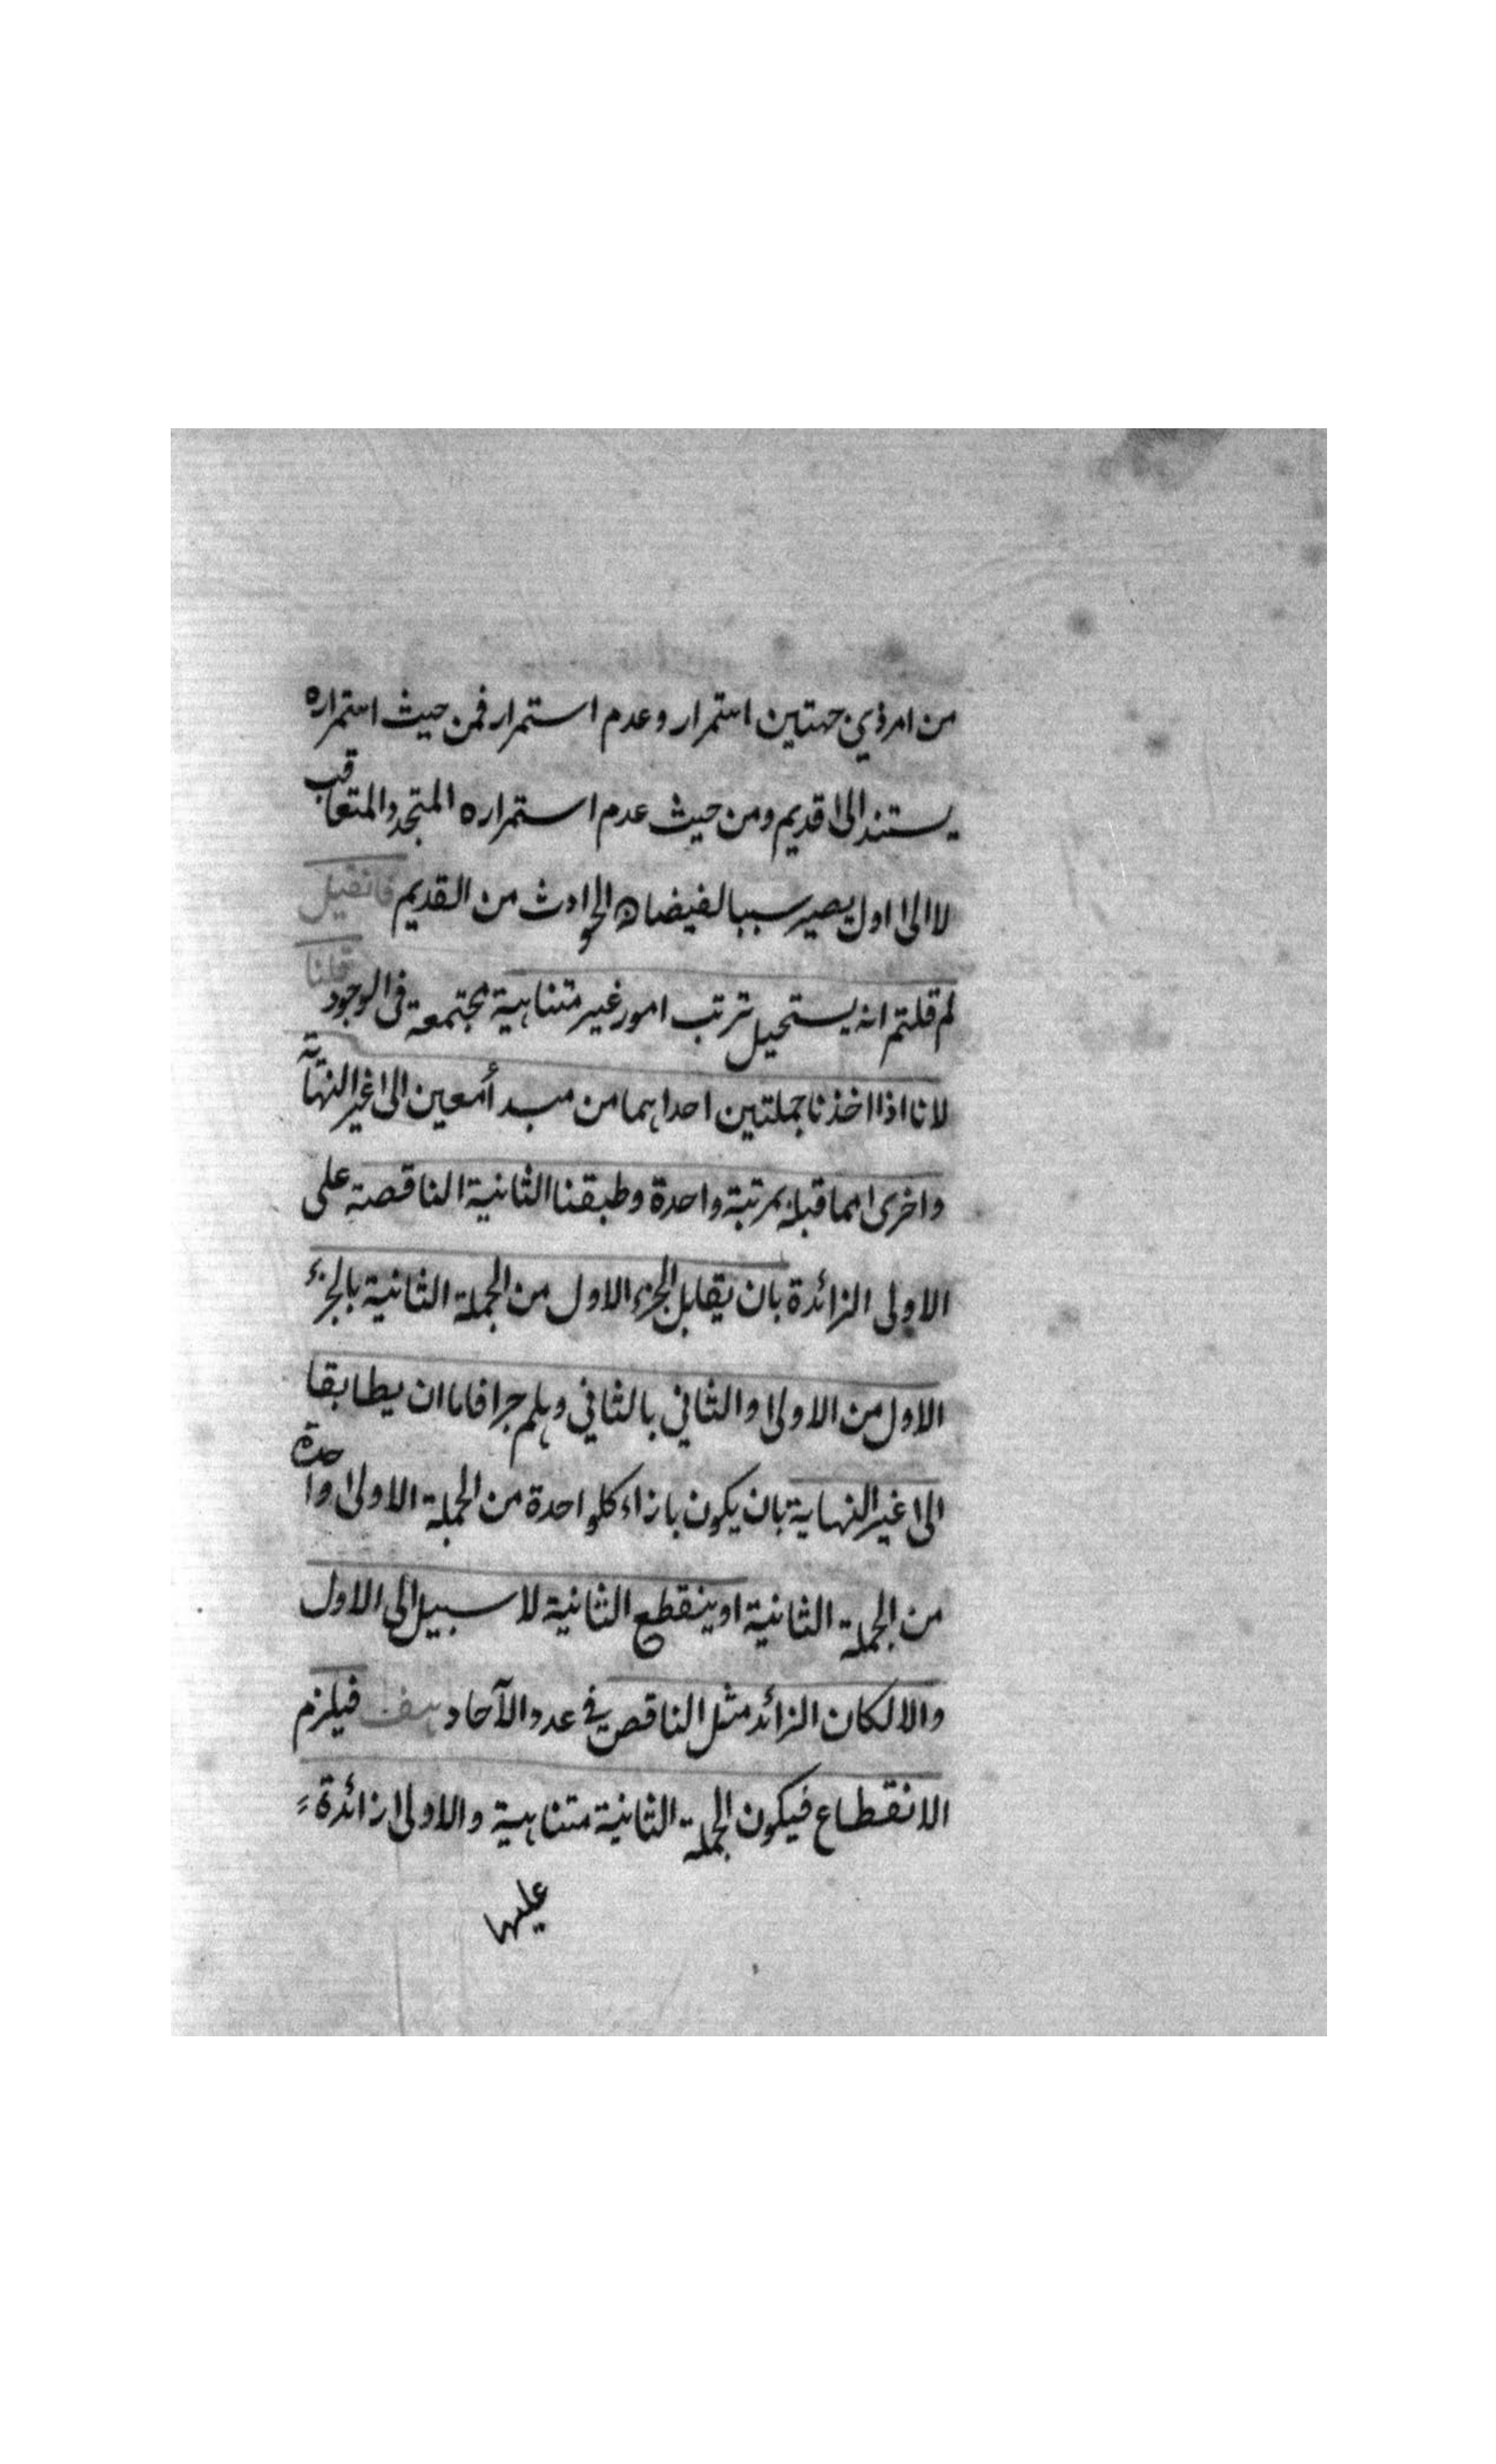 من امر ذي جهتين استمرار وعدم استمرار فمن حيث استمراره
يستند الى قديم ومن حيث عدم استمراره المتجدد المتعاقب
لا الى اول يصير سببا لفيضان الحوادث من القديم فان قيل
لم قلتم انه يستحيل ترتب امور غير متناهية مجتمعة في الوجود قلنا
لانا اذا اخذنا جملتين احداهما من مبدأ معين الى غير النهاية
واخرى مما قبله بمرتبة واحدة وطبقنا الثانية الناقصة على
الاولى الزائدة بان يقابل الجزء الاول من الجملة الثانية بالجزء
الاول من الاولى والثاني بالثاني وهلم جرا فاما ان يطابقا
الى غير النهاية بان يكون بازاء كلواحدة من الجملة الاولى واحدة
من الجملة الثانية او ينقطع الثانية لا سبيل الى الاول
والا لكان الزائد مثل الناقص في عدد الآحاد هف فيلزم
الانقطاع فيكون الجملة الثانية متناهية والاولى زائدة
عليها